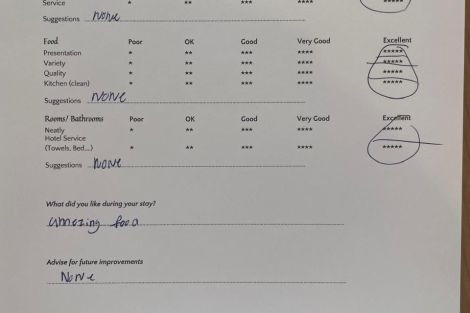 Service * ** *** ****
Suggestions None
Food Poor OK Good Very Good Excellent
Presentation * ** *** **** *****
Variety * ** *** **** *****
Quality * ** *** **** *****
Kitchen (clean) * ** *** **** *****
Suggestions None
Rooms/ Bathrooms Poor OK Good Very Good Excellent
Neatly * ** *** **** *****
Hotel Service
(Towels, Bed...) * ** *** **** *****
Suggestions None
What did you like during your stay?
amazing food
Advise for future improvements
None